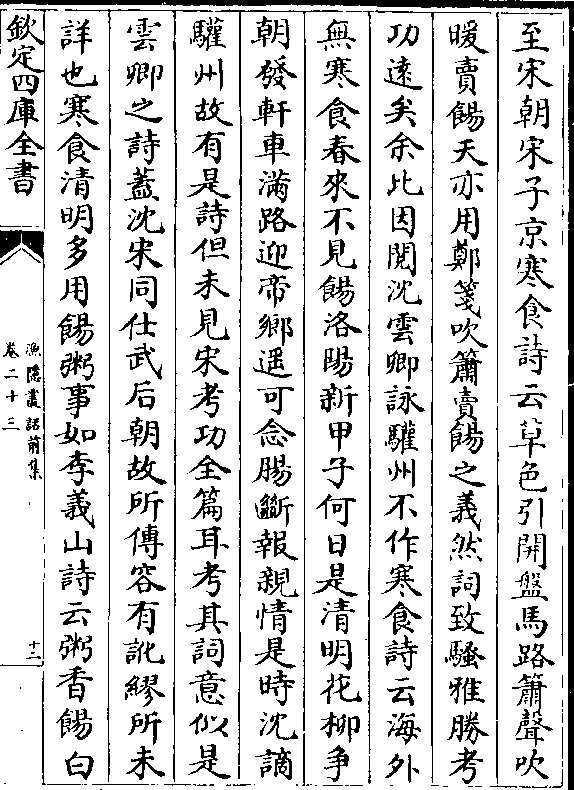 至宋朝宋子京寒食詩云草色引開盤馬路簫聲吹
暖賣餳天亦用鄭箋吹簫賣餳之義然詞致騷雅勝考
功逺矣余比因閲沈雲卿詠驩州不作寒食詩云海外
無寒食春來不見餳洛陽新甲子何日是清明花柳争
朝發軒車滿路迎帝鄉遥可念腸斷報親情是時沈謫
驩州故有是詩但未見宋考功全篇耳考其詞意似是
雲卿之詩葢沈宋同仕武后朝故所傳容有訛繆所未
詳也寒食清明多用餳粥事如李義山詩云粥香餳白
欽定四庫全書
漁隱叢話前集
卷二十三
十二